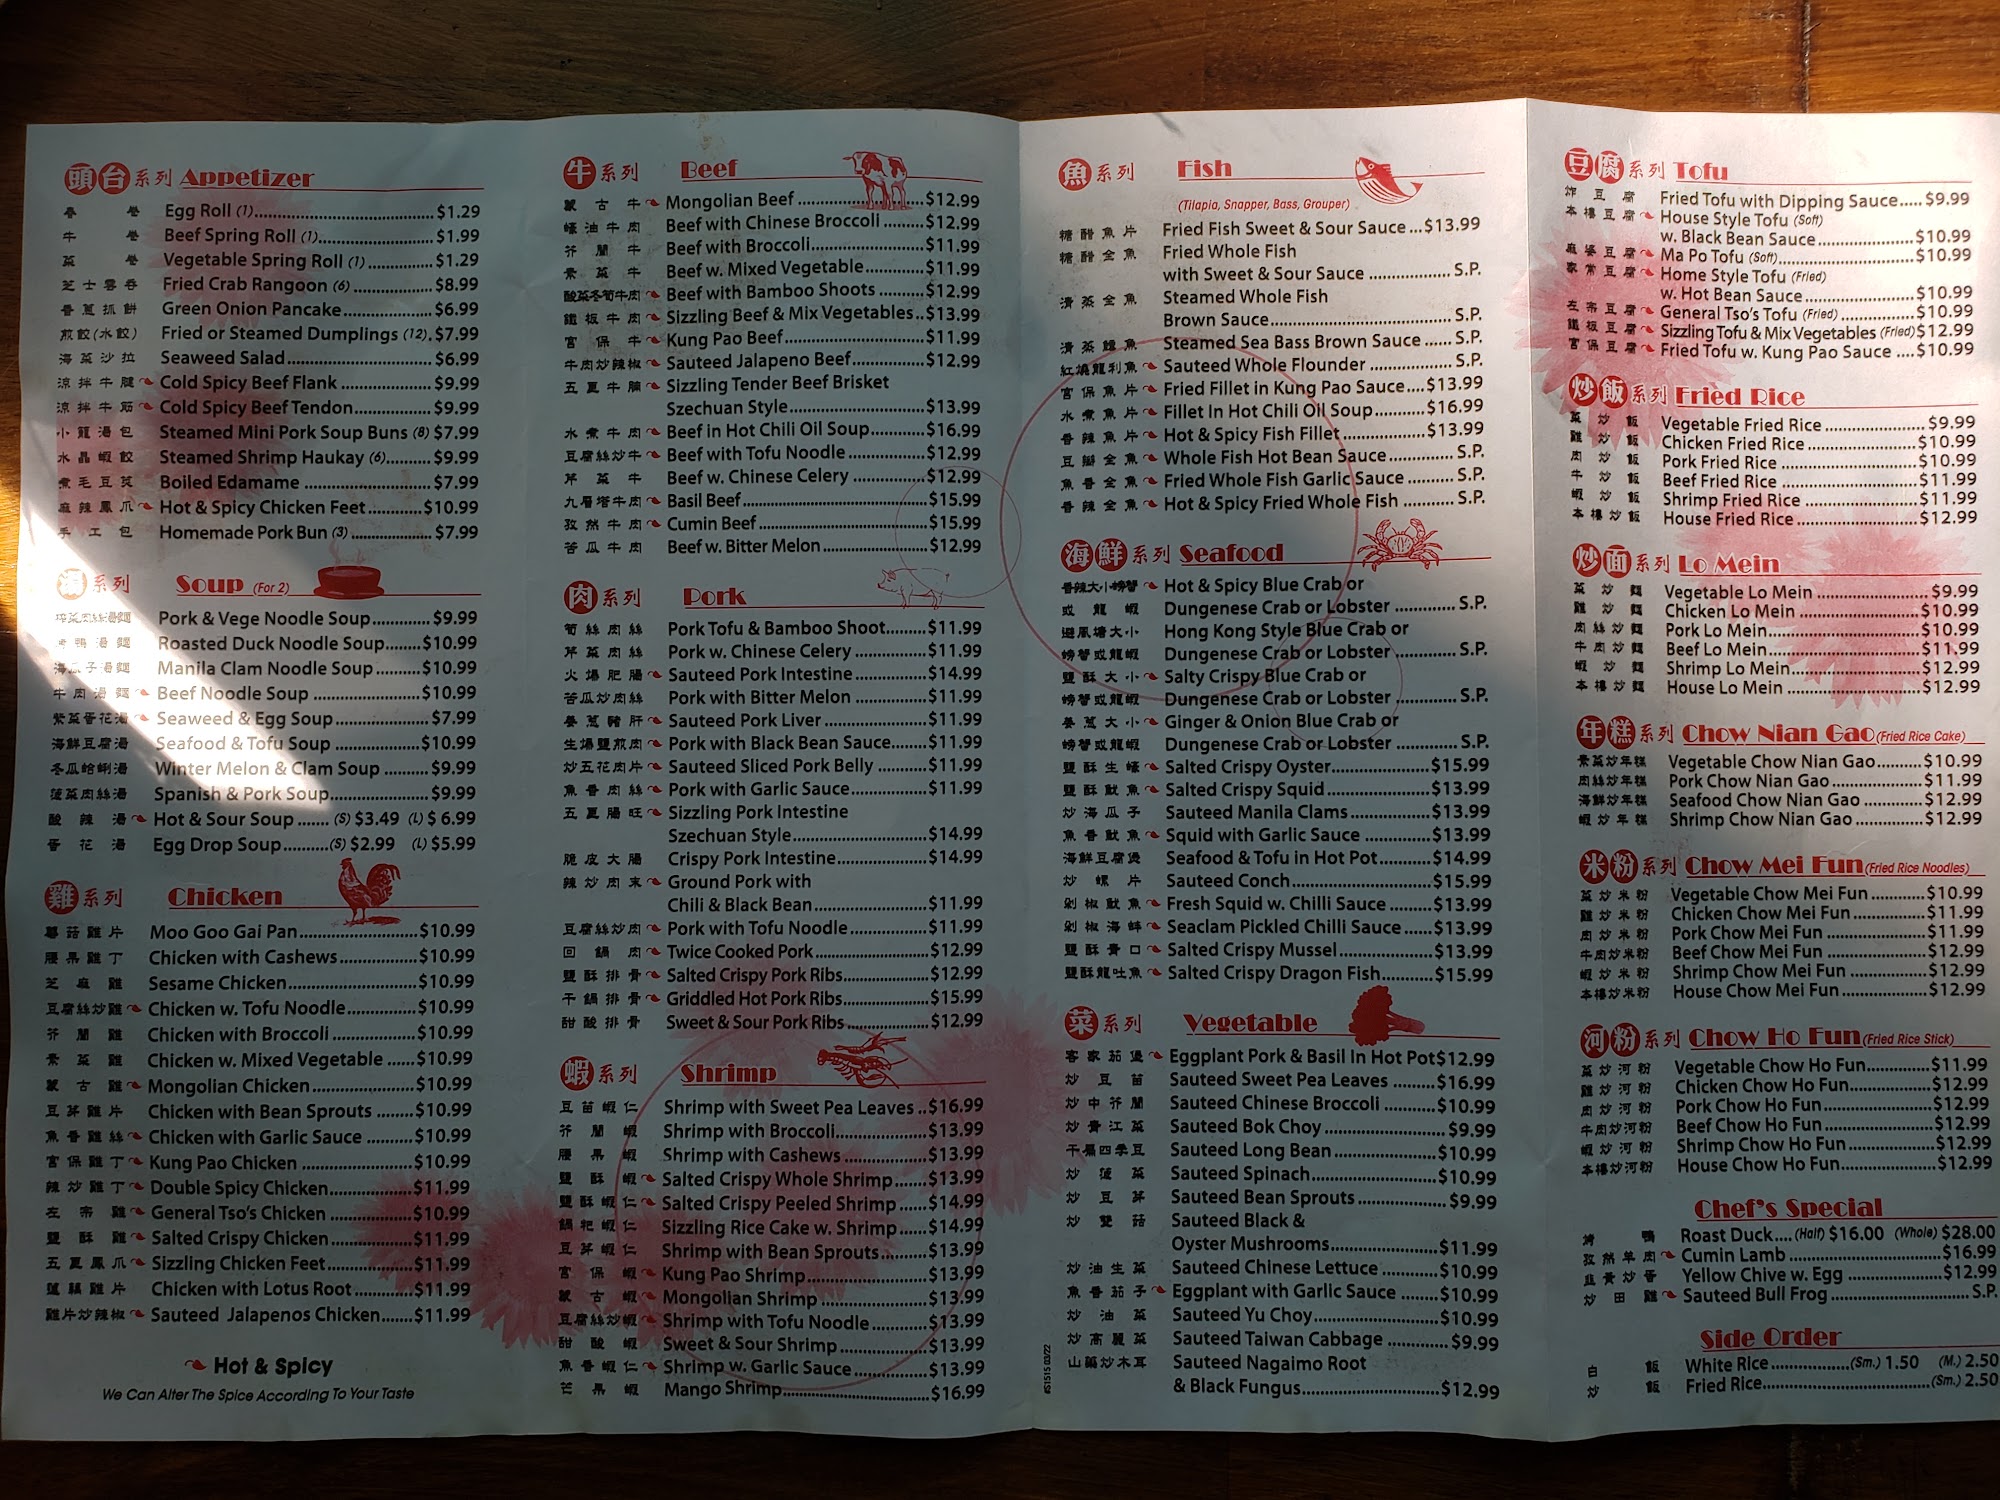 頭台系列 Appetizer
春卷 Egg Roll (1) $1.29
牛卷 Beef Spring Roll (1) $1.99
菜卷 Vegetable Spring Roll (1) $1.29
芝士雲吞 Fried Crab Rangoon (6) $8.99
香蔥抓餅 Green Onion Pancake $6.99
煎餃(水餃) Fried or Steamed Dumplings (12). $7.99
海菜沙拉 Seaweed Salad $6.99
涼拌牛腱 Cold Spicy Beef Flank $9.99
涼拌牛筋 Cold Spicy Beef Tendon $9.99
小籠湯包 Steamed Mini Pork Soup Buns (8) $7.99
水晶蝦餃 Steamed Shrimp Haukay (6) $9.99
煮毛豆莢 Boiled Edamame $7.99
麻辣鳳爪 Hot & Spicy Chicken Feet $10.99
手工包 Homemade Pork Bun (3) $7.99
湯系列 Soup (For 2)
榨菜肉絲湯麵 Pork & Vege Noodle Soup $9.99
烤鴨湯麵 Roasted Duck Noodle Soup $10.99
海瓜子湯麵 Manila Clam Noodle Soup $10.99
牛肉湯麵 Beef Noodle Soup $10.99
紫菜蛋花湯 Seaweed & Egg Soup $7.99
海鮮豆腐湯 Seafood & Tofu Soup $10.99
冬瓜蛤蜊湯 Winter Melon & Clam Soup $9.99
菠菜肉絲湯 Spanish & Pork Soup $9.99
酸辣湯 Hot & Sour Soup (S) $3.49 (L) $ 6.99
蛋花湯 Egg Drop Soup (S) $2.99 (L) $5.99
雞系列 Chicken
蘑菇雞片 Moo Goo Gai Pan $10.99
腰果雞丁 Chicken with Cashews $10.99
芝麻雞 Sesame Chicken $10.99
豆腐絲炒雞 Chicken w. Tofu Noodle $10.99
芥蘭雞 Chicken with Broccoli $10.99
素菜雞 Chicken w. Mixed Vegetable $10.99
蒙古雞 Mongolian Chicken $10.99
豆芽雞片 Chicken with Bean Sprouts $10.99
魚香雞絲 Chicken with Garlic Sauce $10.99
宮保雞丁 Kung Pao Chicken $10.99
辣炒雞丁 Double Spicy Chicken $11.99
左宗雞 General Tso's Chicken $10.99
鹽酥雞 Salted Crispy Chicken $11.99
五更鳳爪 Sizzling Chicken Feet $11.99
蓮藕雞片 Chicken with Lotus Root $11.99
雞片炒辣椒 Sauteed Jalapenos Chicken $11.99
Hot & Spicy
We Can Alter The Spice According To Your Taste
牛系列 Beef
蒙古牛 Mongolian Beef $12.99
蠔油牛肉 Beef with Chinese Broccoli $12.99
芥蘭牛 Beef with Broccoli $11.99
素菜牛 Beef w. Mixed Vegetable $11.99
酸菜冬筍牛肉 Beef with Bamboo Shoots $12.99
鐵板牛肉 Sizzling Beef & Mix Vegetables $13.99
宮保牛 Kung Pao Beef $11.99
牛肉炒辣椒 Sauteed Jalapeno Beef $12.99
五更牛腩 Sizzling Tender Beef Brisket
Szechuan Style $13.99
水煮牛肉 Beef in Hot Chili Oil Soup $16.99
豆腐絲炒牛 Beef with Tofu Noodle $12.99
芹菜牛 Beef w. Chinese Celery $12.99
九層塔牛肉 Basil Beef $15.99
孜然牛肉 Cumin Beef $15.99
苦瓜牛肉 Beef w. Bitter Melon $12.99
肉系列 Pork
筍絲肉絲 Pork Tofu & Bamboo Shoot $11.99
芹菜肉絲 Pork w. Chinese Celery $11.99
火爆肥腸 Sauteed Pork Intestine $14.99
苦瓜炒肉絲 Pork with Bitter Melon $11.99
姜蔥豬肝 Sauteed Pork Liver $11.99
生爆鹽煎肉 Pork with Black Bean Sauce $11.99
炒五花肉片 Sauteed Sliced Pork Belly $11.99
魚香肉絲 Pork with Garlic Sauce $11.99
五更腸旺 Sizzling Pork Intestine
Szechuan Style $14.99
脆皮大腸 Crispy Pork Intestine $14.99
辣炒肉末 Ground Pork with
Chili & Black Bean $11.99
豆腐絲炒肉 Pork with Tofu Noodle $11.99
回鍋肉 Twice Cooked Pork $12.99
鹽酥排骨 Salted Crispy Pork Ribs $12.99
干鍋排骨 Griddled Hot Pork Ribs $15.99
甜酸排骨 Sweet & Sour Pork Ribs $12.99
蝦系列 Shrimp
豆苗蝦仁 Shrimp with Sweet Pea Leaves $16.99
芥蘭蝦 Shrimp with Broccoli $13.99
腰果蝦 Shrimp with Cashews $13.99
鹽酥蝦 Salted Crispy Whole Shrimp $13.99
鹽酥蝦仁 Salted Crispy Peeled Shrimp $14.99
鍋粑蝦仁 Sizzling Rice Cake w. Shrimp $14.99
豆芽蝦仁 Shrimp with Bean Sprouts $13.99
宮保蝦 Kung Pao Shrimp $13.99
蒙古蝦 Mongolian Shrimp $13.99
豆腐絲炒蝦 Shrimp with Tofu Noodle $13.99
甜酸蝦 Sweet & Sour Shrimp $13.99
魚香蝦仁 Shrimp w. Garlic Sauce $13.99
芒果蝦 Mango Shrimp $16.99
魚系列 Fish
(Tilapia, Snapper, Bass, Grouper)
糖醋魚片 Fried Fish Sweet & Sour Sauce $13.99
糖醋全魚 Fried Whole Fish
with Sweet & Sour Sauce S.P.
清蒸全魚 Steamed Whole Fish
Brown Sauce S.P.
清蒸鱸魚 Steamed Sea Bass Brown Sauce S.P.
紅燒龍利魚 Sauteed Whole Flounder S.P.
宮保魚片 Fried Fillet in Kung Pao Sauce $13.99
水煮魚片 Fillet In Hot Chili Oil Soup $16.99
香辣魚片 Hot & Spicy Fish Fillet $13.99
豆瓣全魚 Whole Fish Hot Bean Sauce S.P.
魚香全魚 Fried Whole Fish Garlic Sauce S.P.
香辣全魚 Hot & Spicy Fried Whole Fish S.P.
海鮮系列 Seafood
香辣大小螃蟹 Hot & Spicy Blue Crab or
或龍蝦 Dungenese Crab or Lobster S.P.
避風塘大小 Hong Kong Style Blue Crab or
螃蟹或龍蝦 Dungenese Crab or Lobster S.P.
鹽酥大小 Salty Crispy Blue Crab or
螃蟹或龍蝦 Dungenese Crab or Lobster S.P.
姜蔥大小 Ginger & Onion Blue Crab or
螃蟹或龍蝦 Dungenese Crab or Lobster S.P.
鹽酥生蠔 Salted Crispy Oyster $15.99
鹽酥魷魚 Salted Crispy Squid $13.99
炒海瓜子 Sauteed Manila Clams $13.99
魚香魷魚 Squid with Garlic Sauce $13.99
海鮮豆腐煲 Seafood & Tofu in Hot Pot $14.99
炒螺片 Sauteed Conch $15.99
剁椒魷魚 Fresh Squid w. Chilli Sauce $13.99
剁椒海蚌 Seaclam Pickled Chilli Sauce $13.99
鹽酥青口 Salted Crispy Mussel $13.99
鹽酥龍吐魚 Salted Crispy Dragon Fish $15.99
菜系列 Vegetable
客家茄煲 Eggplant Pork & Basil In Hot Pot $12.99
炒豆苗 Sauteed Sweet Pea Leaves $16.99
炒中芥蘭 Sauteed Chinese Broccoli $10.99
炒青江菜 Sauteed Bok Choy $9.99
干扁四季豆 Sauteed Long Bean $10.99
炒菠菜 Sauteed Spinach $10.99
炒豆芽 Sauteed Bean Sprouts $9.99
炒雙菇 Sauteed Black &
Oyster Mushrooms $11.99
炒油生菜 Sauteed Chinese Lettuce $10.99
魚香茄子 Eggplant with Garlic Sauce $10.99
炒油菜 Sauteed Yu Choy $10.99
炒高麗菜 Sauteed Taiwan Cabbage $9.99
山藥炒木耳 Sauteed Nagaimo Root
& Black Fungus $12.99
#S1515 03/22
豆腐系列 Tofu
炸豆腐 Fried Tofu with Dipping Sauce $9.99
本樓豆腐 House Style Tofu (Soft)
w. Black Bean Sauce $10.99
麻婆豆腐 Ma Po Tofu (Soft) $10.99
家常豆腐 Home Style Tofu (Fried)
w. Hot Bean Sauce $10.99
左宗豆腐 General Tso's Tofu (Fried) $10.99
鐵板豆腐 Sizzling Tofu & Mix Vegetables (Fried) $12.99
宮保豆腐 Fried Tofu w. Kung Pao Sauce $10.99
炒飯系列 Fried Rice
菜炒飯 Vegetable Fried Rice $9.99
雞炒飯 Chicken Fried Rice $10.99
肉炒飯 Pork Fried Rice $10.99
牛炒飯 Beef Fried Rice $11.99
蝦炒飯 Shrimp Fried Rice $11.99
本樓炒飯 House Fried Rice $12.99
炒面系列 Lo Mein
菜炒麵 Vegetable Lo Mein $9.99
雞炒麵 Chicken Lo Mein $10.99
肉絲炒麵 Pork Lo Mein $10.99
牛肉炒麵 Beef Lo Mein $11.99
蝦炒麵 Shrimp Lo Mein $12.99
本樓炒麵 House Lo Mein $12.99
年糕系列 Chow Nian Gao (Fried Rice Cake)
素菜炒年糕 Vegetable Chow Nian Gao $10.99
肉絲炒年糕 Pork Chow Nian Gao $11.99
海鮮炒年糕 Seafood Chow Nian Gao $12.99
蝦炒年糕 Shrimp Chow Nian Gao $12.99
米粉系列 Chow Mei Fun (Fried Rice Noodles)
菜炒米粉 Vegetable Chow Mei Fun $10.99
雞炒米粉 Chicken Chow Mei Fun $11.99
肉炒米粉 Pork Chow Mei Fun $11.99
牛肉炒米粉 Beef Chow Mei Fun $12.99
蝦炒米粉 Shrimp Chow Mei Fun $12.99
本樓炒米粉 House Chow Mei Fun $12.99
河粉系列 Chow Ho Fun (Fried Rice Stick)
菜炒河粉 Vegetable Chow Ho Fun $11.99
雞炒河粉 Chicken Chow Ho Fun $12.99
肉炒河粉 Pork Chow Ho Fun $12.99
牛肉炒河粉 Beef Chow Ho Fun $12.99
蝦炒河粉 Shrimp Chow Ho Fun $12.99
本樓炒河粉 House Chow Ho Fun $12.99
Chef's Special
烤鴨 Roast Duck (Half) $16.00 (Whole) $28.00
孜然羊肉 Cumin Lamb $16.99
韭黃炒蛋 Yellow Chive w. Egg $12.99
炒田雞 Sauteed Bull Frog S.P.
Side Order
白飯 White Rice (Sm.) 1.50 (M.) 2.50
炒飯 Fried Rice (Sm.) 2.50